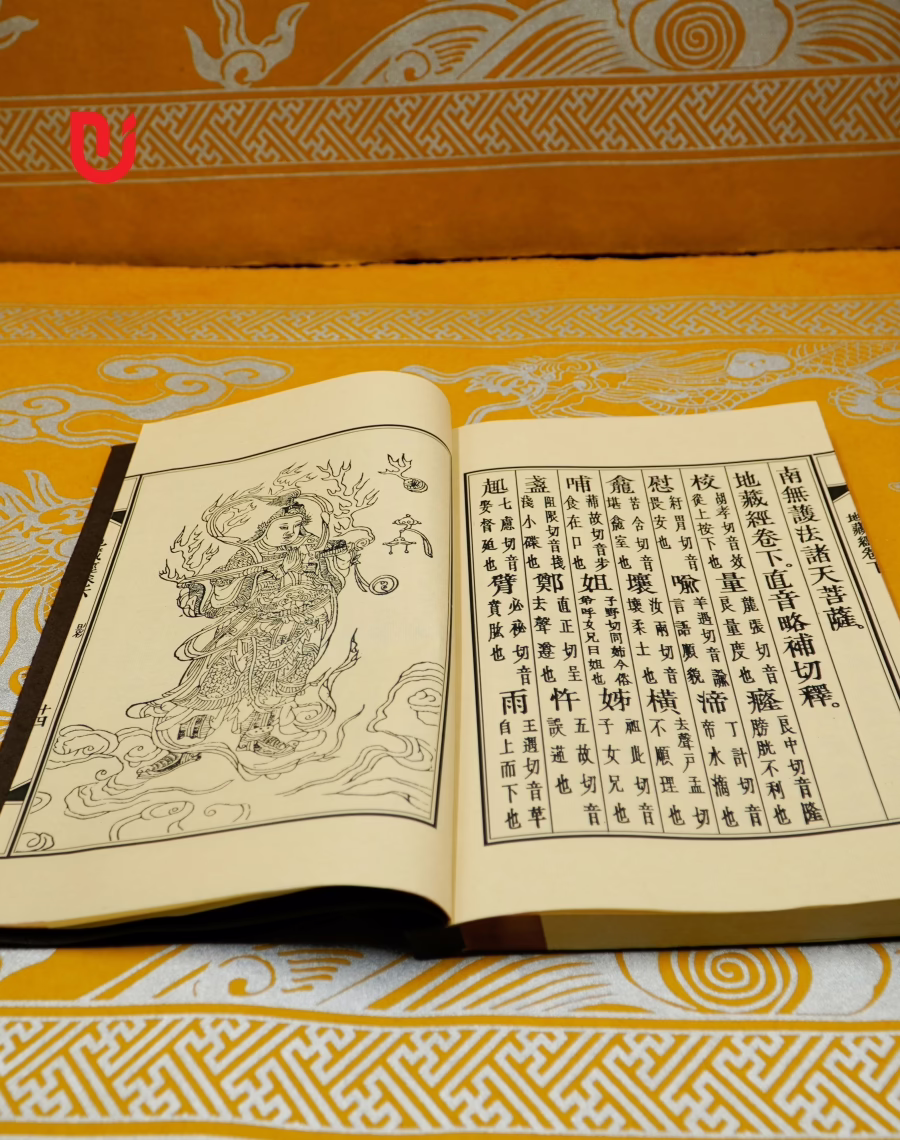 南無護法諸天菩薩。
地藏經卷下。直音略補切釋。
校胡孝切音效從上按下也量龍張切音艮量度也癃艮中切音隆膀胱不利也
慰紆胃切音畏安也喻羊遇切音言語順貌渧丁計切音帝水滴也
龕苦含切音堪龕室也壤汝兩切音壤柔土也橫去聲戶孟切不順理也
哺蒲故切音步食在口也姐子野切同姊今俗爺呼女兄曰姐也姊祖此切音子女兄也
盞阻限切音棧淺小碟也鄭直正切呈去聲遵也忤五故切音誤逆也
趣七慮切音娶督也臂必祕切音賁肱也雨王遇切音草自上而下也
地藏經卷下
十四